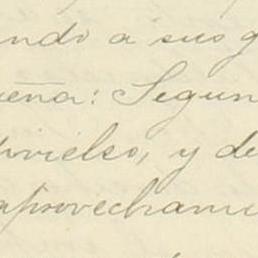 ando a sus g
eña: Segun
ovielso, y de
aprovechami